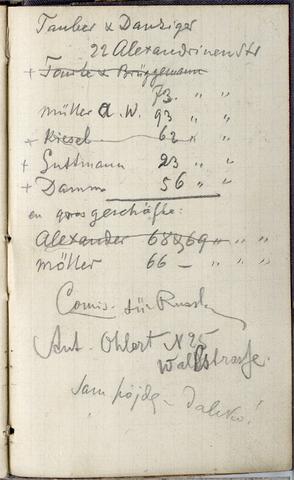 Tauber & Danziger
22 Alexandrinenstr
+ Tante & Brüggemann
73. " "
Müller A. W. 93 " "
+ Kiesel 62 " "
+ Guttmann 23 " "
+ Damm 56 " "
en gros geschäfte:
Alexander 68/69 " " "
Möller 66 – " " "
Comis. für Russl.
Ant. Ohlert N 25
Wallstrasse.
Sam pójdę – daleko!